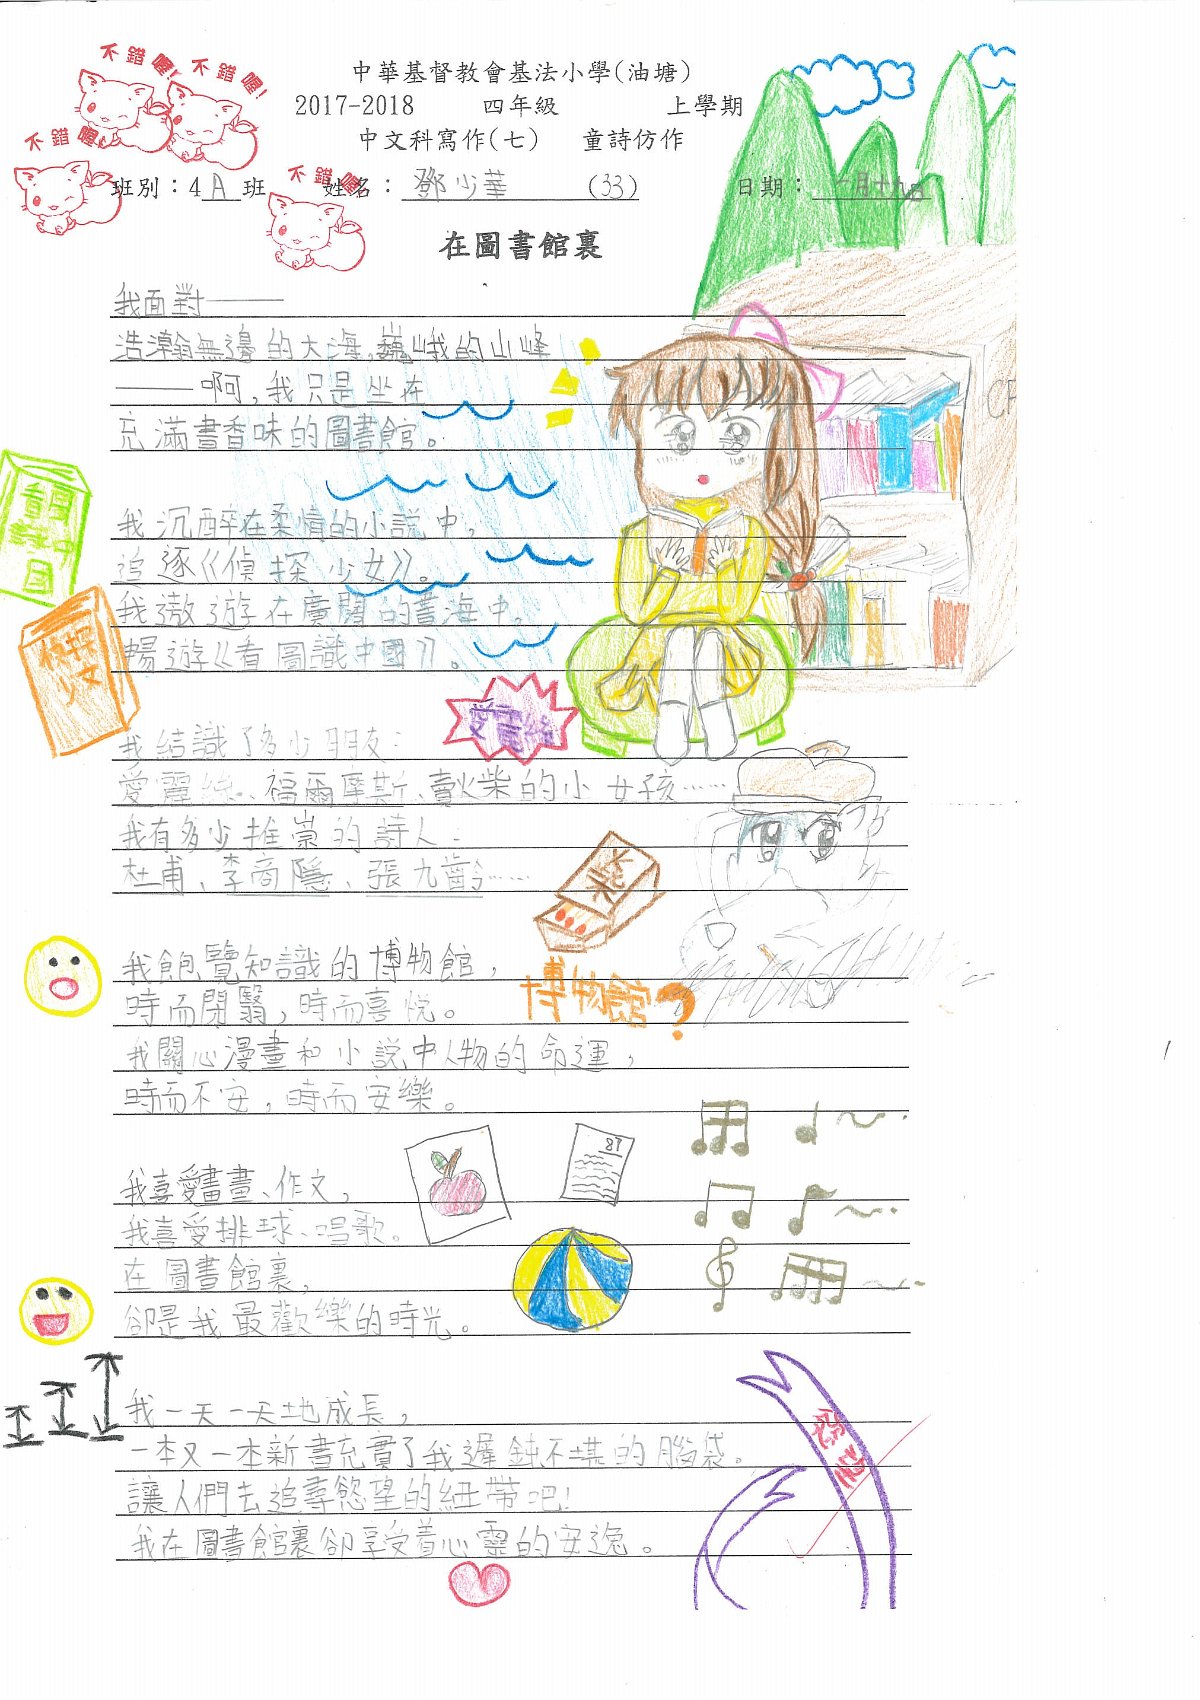 不錯喔!
不錯喔!
不錯喔
不錯喔
中華基督教會基法小學(油塘)
2017-2018 四年級 上學期
中文科寫作(七) 童詩仿作
班別：4A班 姓名：鄧少華 (33) 日期：一月十九日
在圖書館裏
我面對——
浩瀚無邊的大海,巍峨的山峰
——啊,我只是坐在
充滿書香味的圖書館。
我沉醉在柔情的小說中,
追逐《偵探少女》。
我遨遊在廣闊的書海中,
暢遊《看圖識中國》。
我結識了多少朋友:
愛麗絲、福爾摩斯、賣火柴的小女孩……
我有多少推崇的詩人:
杜甫、李商隱、張九齡……
我飽覽知識的博物館,
時而閉翳,時而喜悅。
我關心漫畫和小說中人物的命運,
時而不安,時而安樂。
我喜愛畫畫、作文,
我喜愛排球、唱歌。
在圖書館裏,
卻是我最歡樂的時光。
我一天一天地成長,
一本又一本新書充實了我遲鈍不堪的腦袋。
讓人們去追尋慾望的紐帶吧!
我在圖書館裏卻享受着心靈的安逸。
看圖識中國
偵探少女
愛麗絲
火柴
博物館?
89
慾望